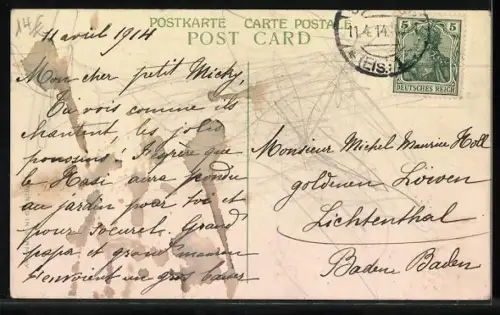 14 E
POSTKARTE CARTE POSTALE
POST CARD
11 avril 1914
Mon cher petit Micky,
Tu vois comme ils
chantent, les jolis
poussins! J'espère que
le Hasi aura pondu
au jardin pour toi et
pour Grand
papa et grand maman
t'envoient un gros baiser
11.4.14
(ELS.)
5 5
DEUTSCHES REICH
Monsieur Michel Maurice Holl
goldenen Löwen
Lichtenthal
Baden Baden